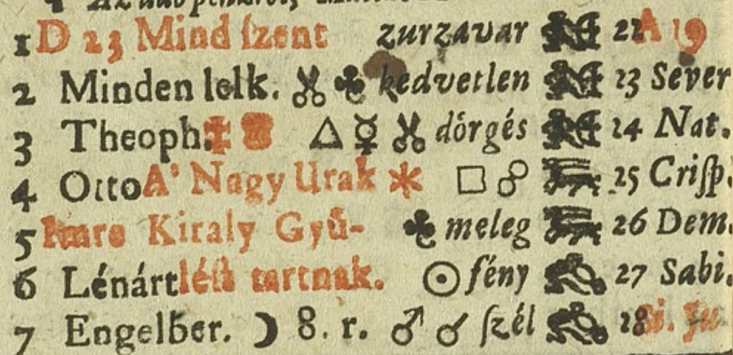 1 D 23 Mind ſzent zurzavar 22 A 19
2 Minden lelk. ♣ kedvetlen 23 Sever
3 Theoph. △ ☿ dörgés 24 Nat.
4 Otto A' Nagy Urak * □ ☍ 25 Criſp.
5 Imre Kiraly Gyű- ♣ meleg 26 Dem.
6 Lénárt lést tartnak. ☉ fény 27 Sabi.
7 Engelber. ☽ 8. r. ♂ ☌ ſzél 28